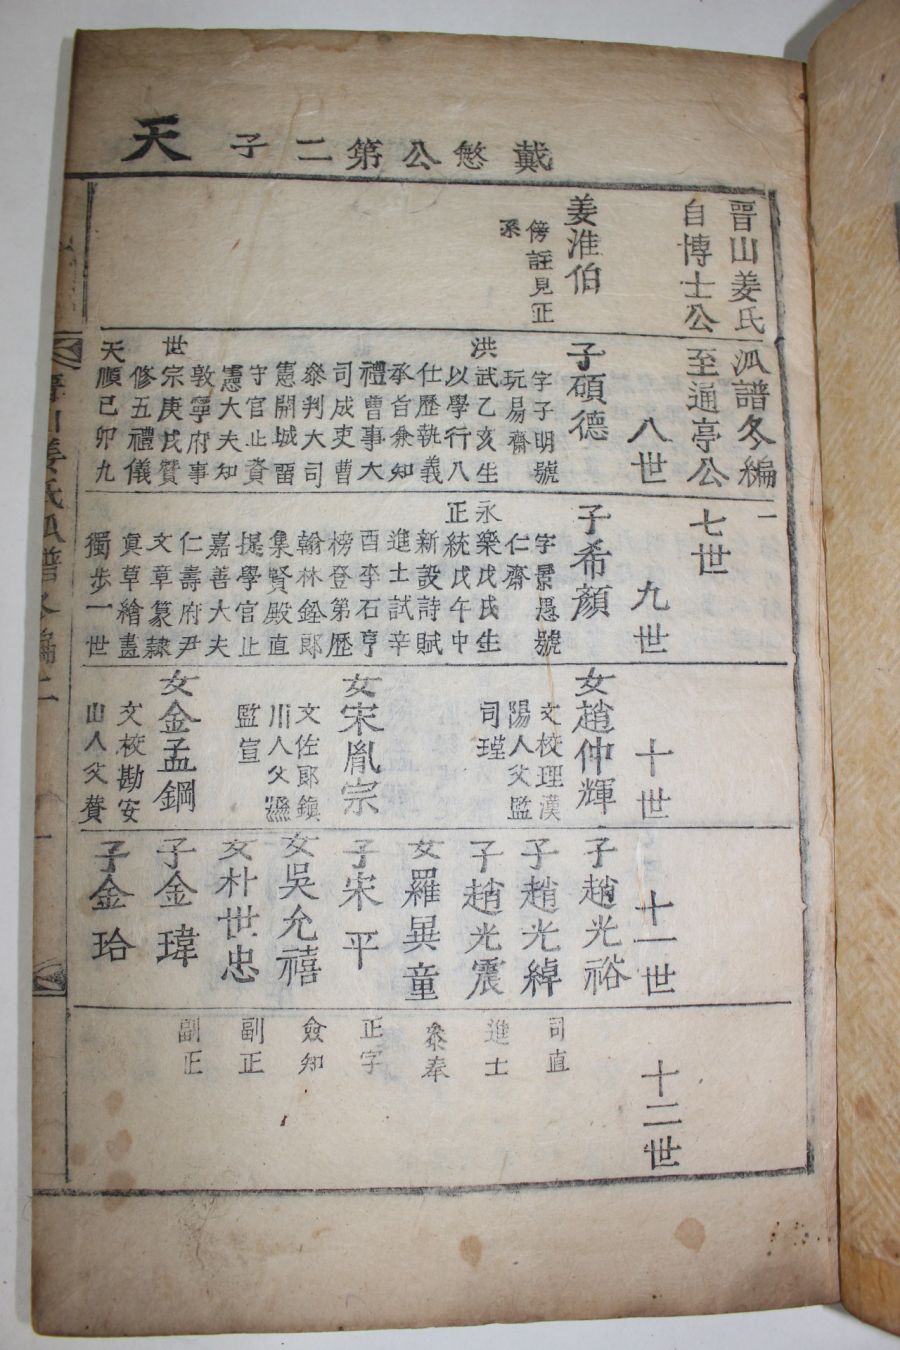 天 戴慜公第二子
晋山姜氏派譜冬編一
自博士公至通亭公七世
八世
九世
十世
十一世
十二世
姜淮伯
傍註見正
系
子碩德
字子明號
玩易齋
洪武乙亥生
以學行八
仕歷執義
承旨兼知
禮曹事大
司成吏曹
叅判大司
憲開城畱
守官止資
憲大夫知
敦寧府事
世宗庚戌贊
修五禮儀
天順己卯九
子希顔
字景愚號
仁齋
永樂戊戌生
正統戊午中
新設詩賦
進士試辛
酉李石亨
榜登第歷
翰林銓郞
集賢殿直
提學官止
嘉善大夫
仁壽府尹
文章篆隷
眞草繪畵
獨步一世
女趙仲輝
文校理漢
陽人父監
司瑾
女宋胤宗
文佐郞鎭
川人父㵢
監宣
女金孟鋼
文校勘安
山人父賛
子趙光裕
司直
子趙光綽
進士
子趙光震
女羅異童
叅奉
子宋平
正字
女吳允禧
僉知
女朴世忠
副正
子金瑋
副正
子金珆
姜氏派譜冬編二